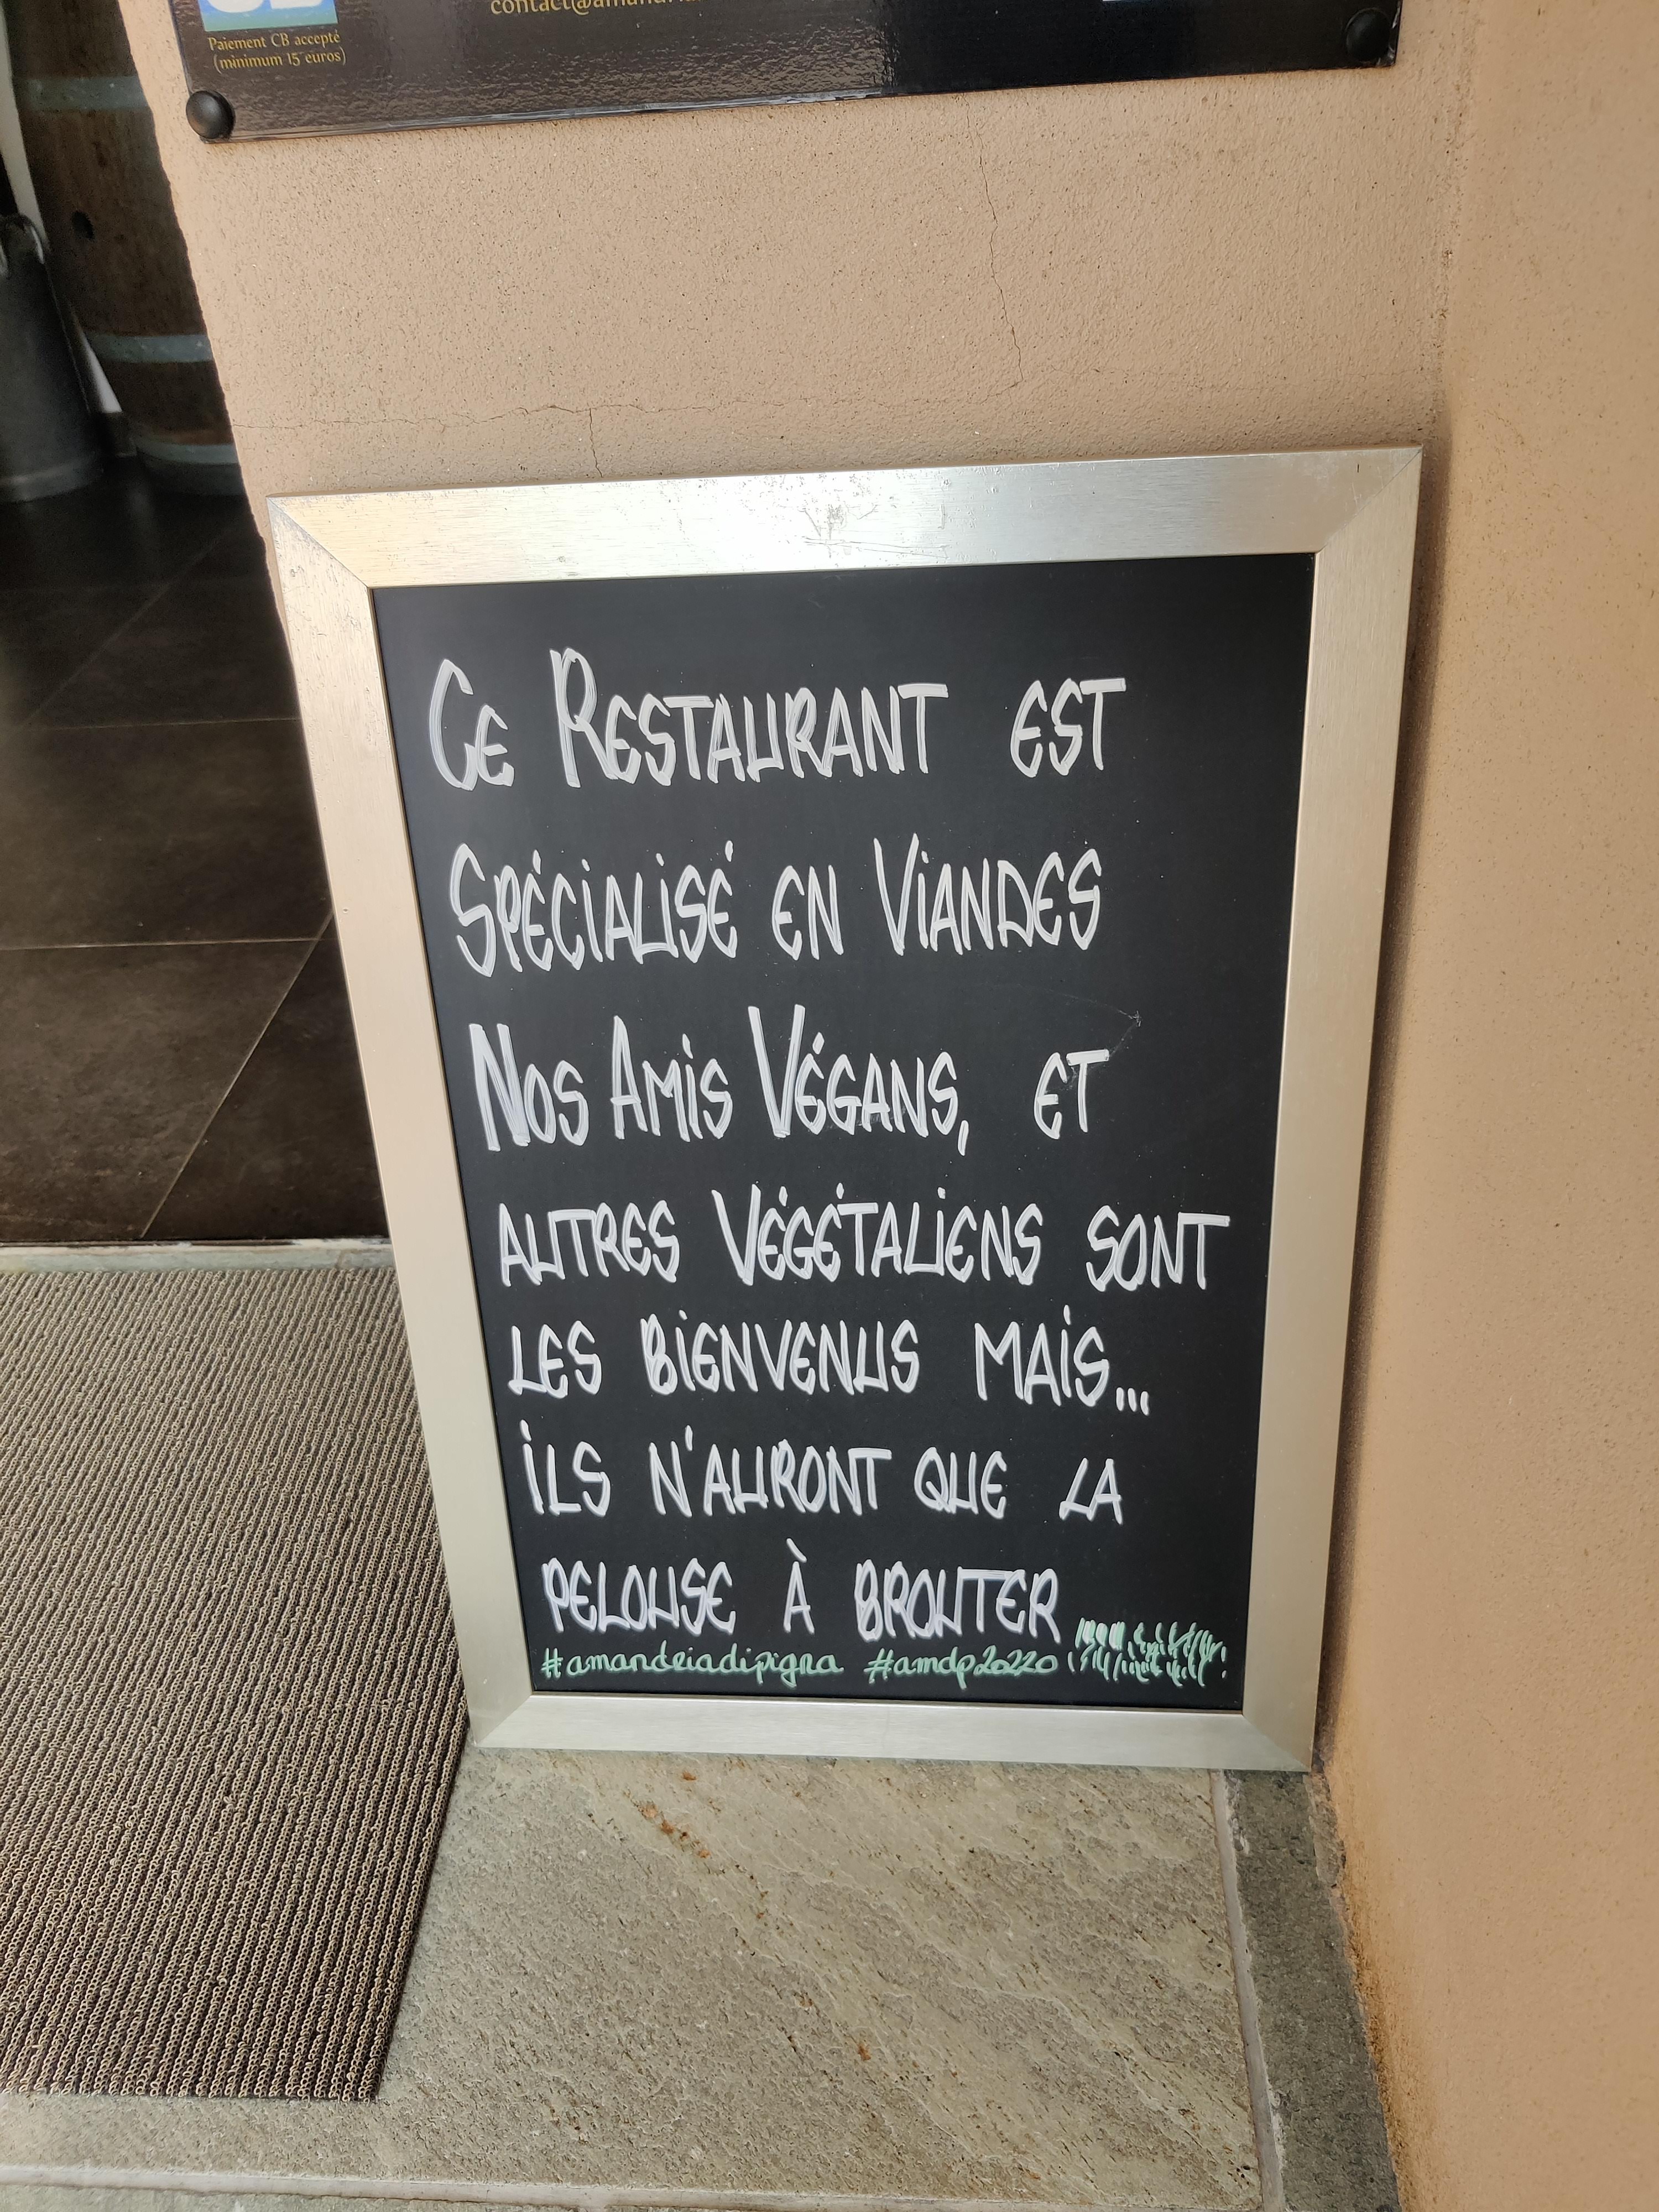 Paiement CB accepté
(minimum 15 euros)
CE RESTAURANT EST
SPÉCIALISÉ EN VIANDES
NOS AMIS VÉGANS, ET
AUTRES VÉGÉTALIENS SONT
LES BIENVENUS MAIS...
ILS N'AURONT QUE LA
PELOUSE À BROUTER
#amandriadipigna #amdp20220